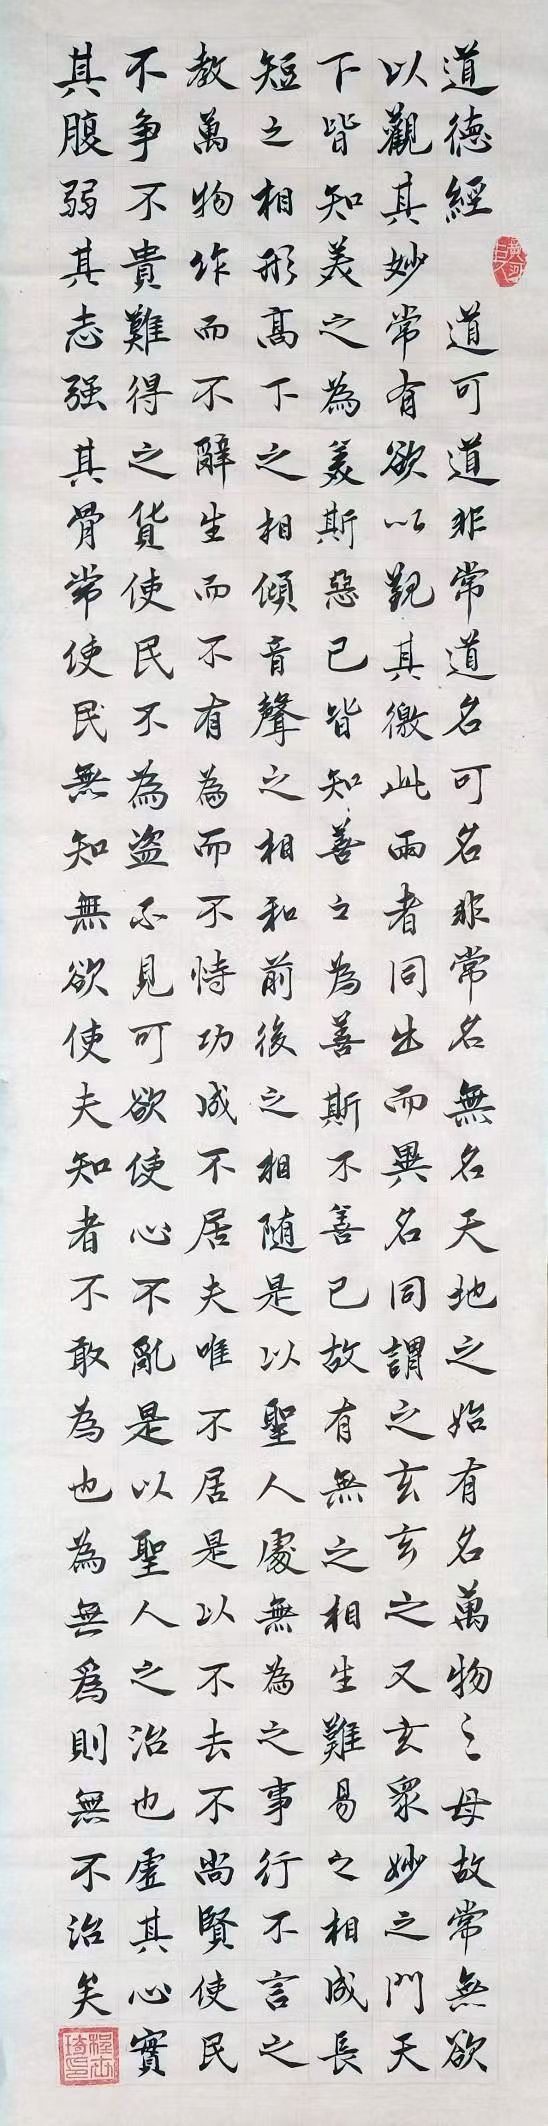 道德經 道可道非常道名可名非常名無名天地之始有名萬物之母故常無欲
以觀其妙常有欲以觀其徼此兩者同出而異名同謂之玄玄之又玄眾妙之門天
下皆知美之為美斯惡已皆知善之為善斯不善已故有無之相生難易之相成長
短之相形高下之相傾音聲之相和前後之相随是以聖人處無為之事行不言之
教萬物作而不辭生而不有為而不恃功成不居夫唯不居是以不去不尚賢使民
不争不貴難得之货使民不為盗不見可欲使心不亂是以聖人之治也虛其心實
其腹弱其志强其骨常使民無知無欲使夫知者不敢為也為無為則無不治矣